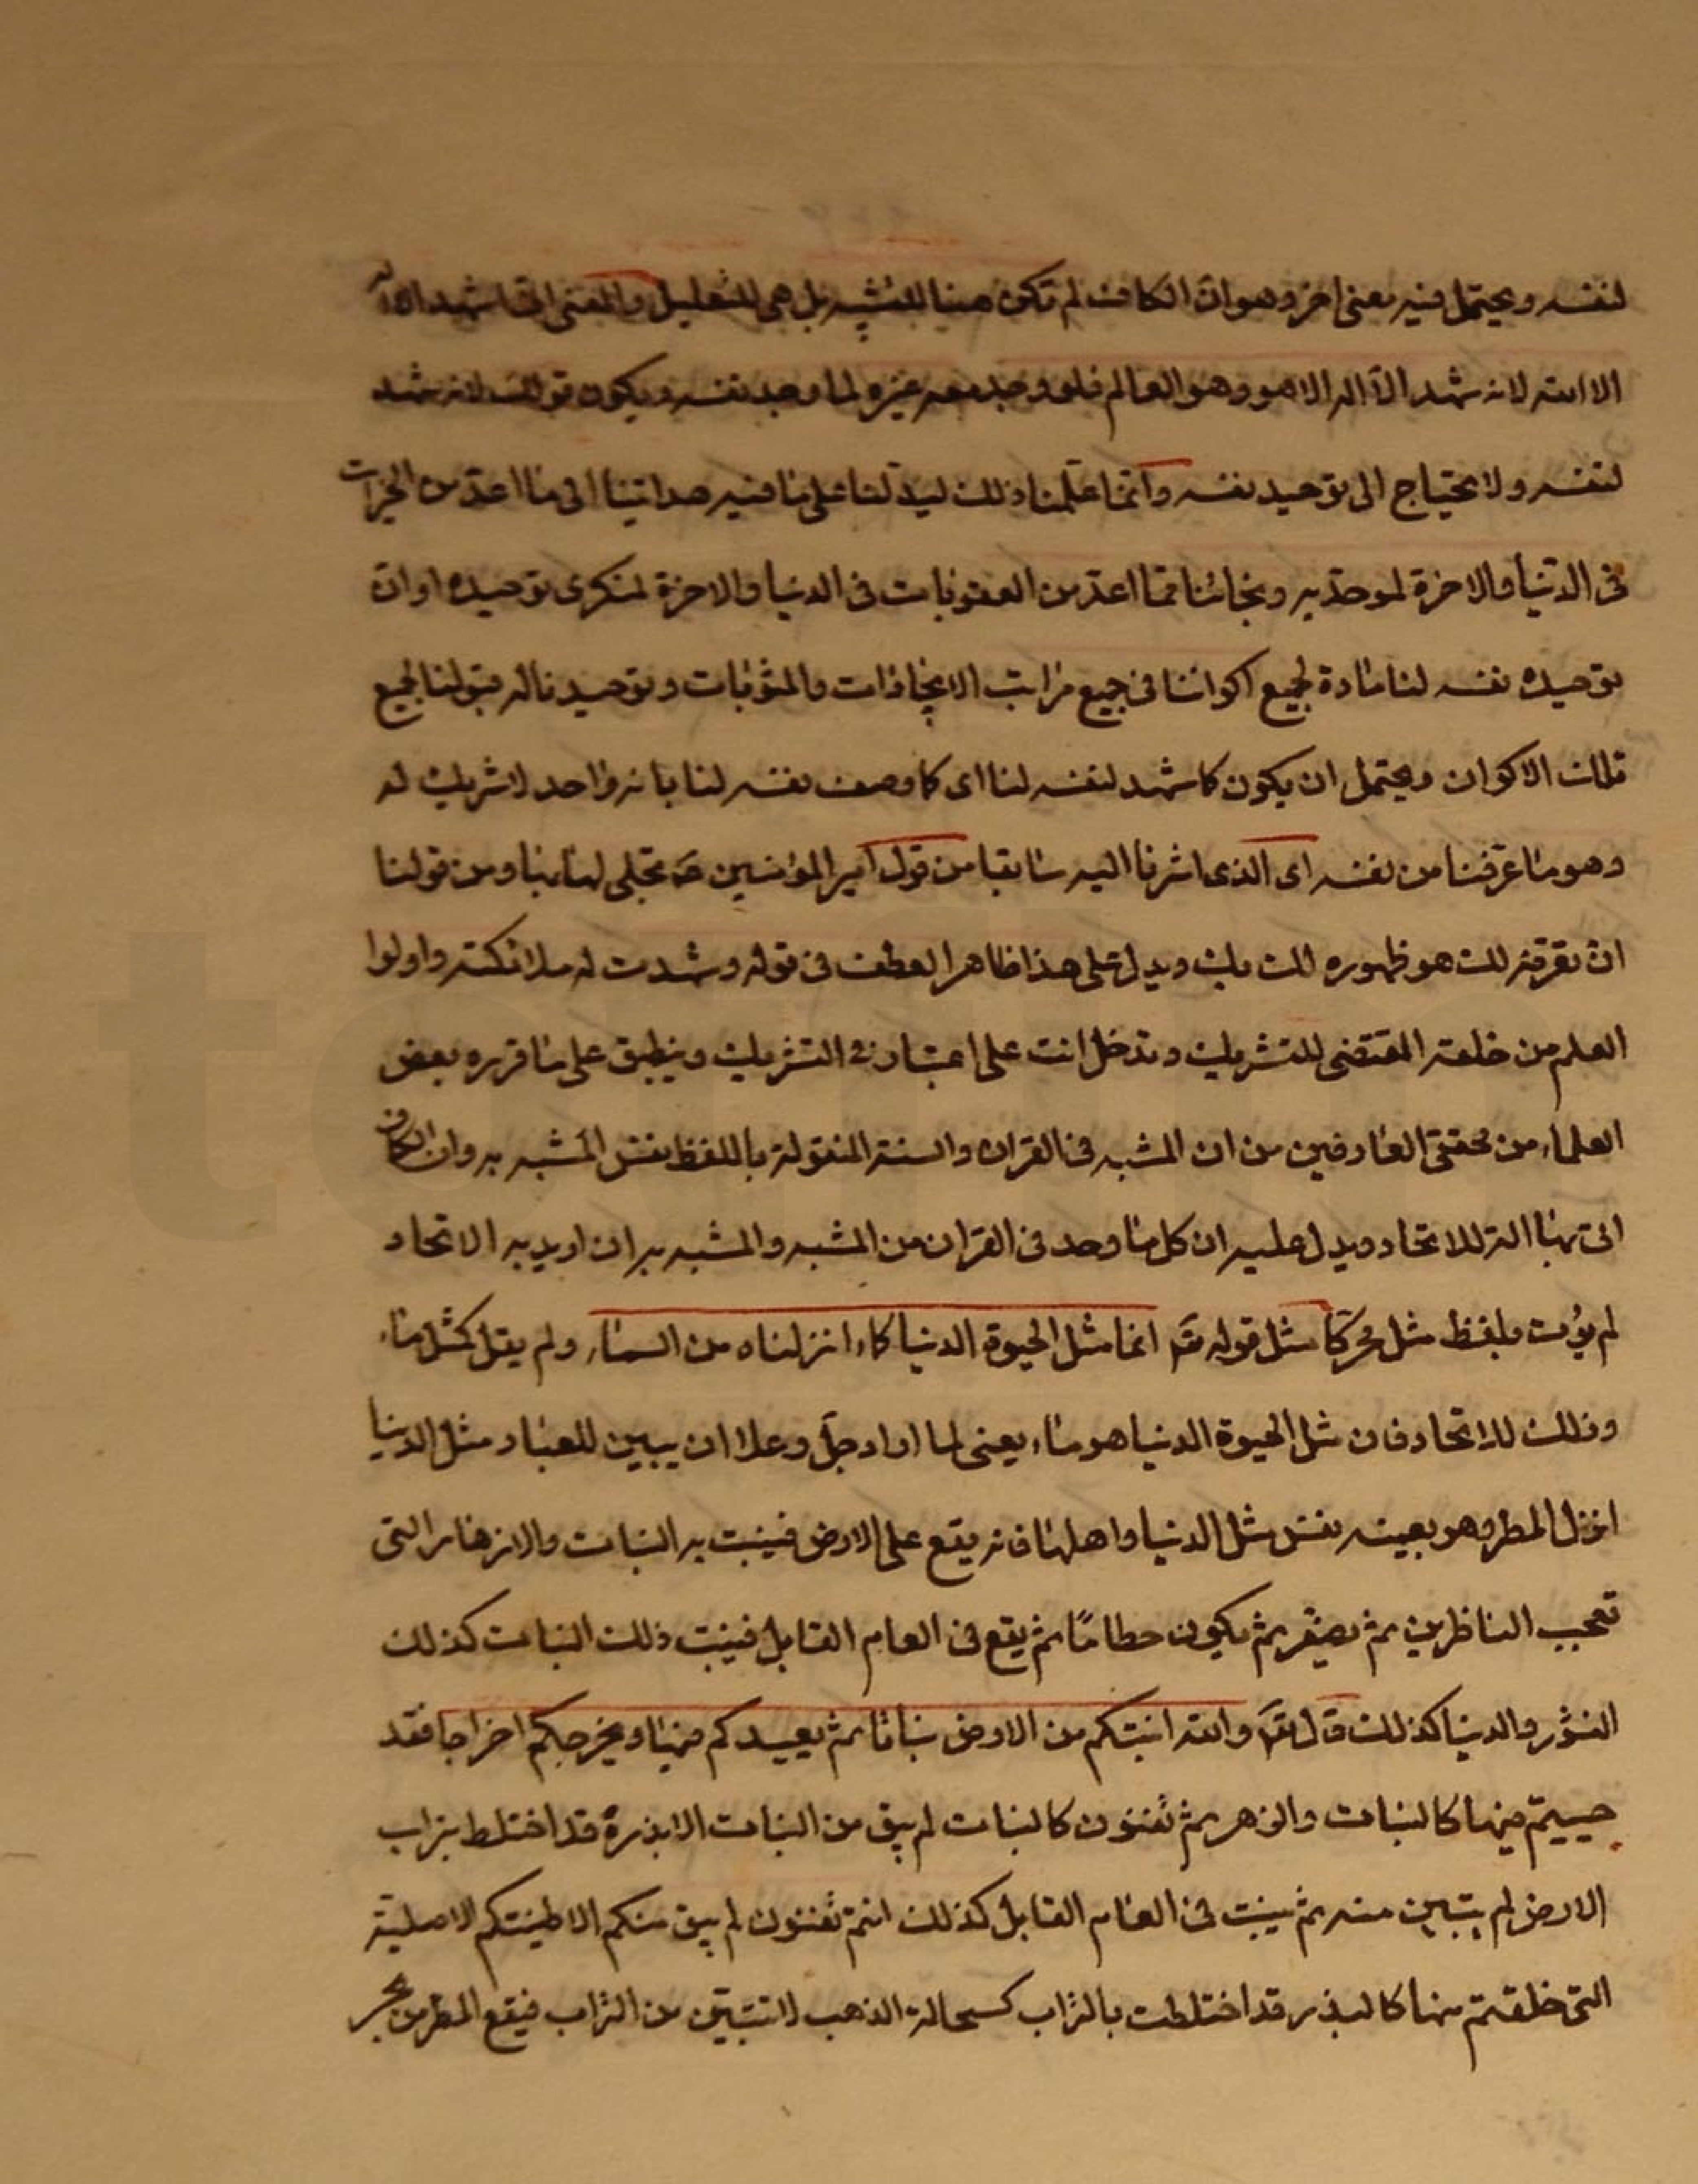 لنفسه ويحتمل فيه معنى اخر وهو ان الكاف لم تكن هنا للتشبيه بل هي للتعليل والمعنى انما شهد ان لا اله
الا الله لانه شهد الا اله الا هو وهو العالم فلو وجد معه غيره لما وحد نفسه ويكون قولك لانه شهد
لنفسه ولا يحتياج الى توحيد نفسه وانما علمنا ذلك ليدلنا على ما فيه هدايتنا الى ما اعد من الخيرات
فى الدنيا والاخرة لموحديه ونجاتنا مما اعد من العقوبات فى الدنيا والاخرة لمنكرى توحيده او ان
توحيده نفسه لنا مادة لجميع اكواننا فى جميع مراتب الايجادات والمثوبات وتوحيدنا له قبولنا لجميع
تلك الاكوان ويحتمل ان يكون كما شهد لنفسه لنا اى كما وصف نفسه لنا بانه واحد لا شريك له
وهو ما عرفنا من نفسه اى الذى اشرنا اليه سابقا من قول امير المؤمنين ع تجلى لها بها ومن قولنا
ان تعرفه لك هو ظهوره لك بك ويدل على هذا ظاهر العطف فى قوله وشهدت له ملائكته واولوا
العلم من خلقه المقتضى للتشريك وتدخل انت على اعتبار فى التشريك وينطبق على ما قرره بعض
العلماء من محققى العارفين من ان المشبه فى القران والسنة المنقولة باللفظ نفس المشبه به وان الكاف
اتى بها الة للاتحاد ويدل عليه ان كل ما وجد فى القران من المشبه والمشبه به ان اريد به الاتحاد
لم يؤت بلفظ مثل محركا مثل قوله تع انما مثل الحيوة الدنيا كماء انزلناه من السماء ولم يقل كمثل ماء
وذلك للاتحاد فان مثل الحيوة الدنيا هو ماء يعنى لما اراد جل وعلا ان يبين للعباد مثل الدنيا
انزل المطر وهو بعينه نفس مثل الدنيا واهلها فانه يقع على الارض فينبت به النبات والازهار التى
تعجب الناظرين ثم يصفر ثم يكون حطاما ثم يقع فى العام القابل فينبت ذلك النبات كذلك
النشور والدنيا كذلك قال تع والله انبتكم من الارض نباتا ثم يعيدكم فيها ويخرجكم اخراجا فقد
حييتم فيها كالنبات والزهر ثم تفنون كالنبات لم يبق من النبات الا بذره قد اختلط بتراب
الارض لم يتبين منه ثم ينبت فى العام القابل كذلك انتم تفنون لم يبق منكم الا طينتكم الاصلية
التى خلقتم منها كالبذر قد اختلطت بالتراب كسحالة الذهب لا تتبين من التراب فيقع المطر من بحر